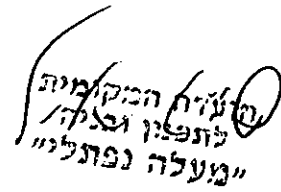 הועדה המקומית
לתכנון ובניה
"מעלה נפתלי"